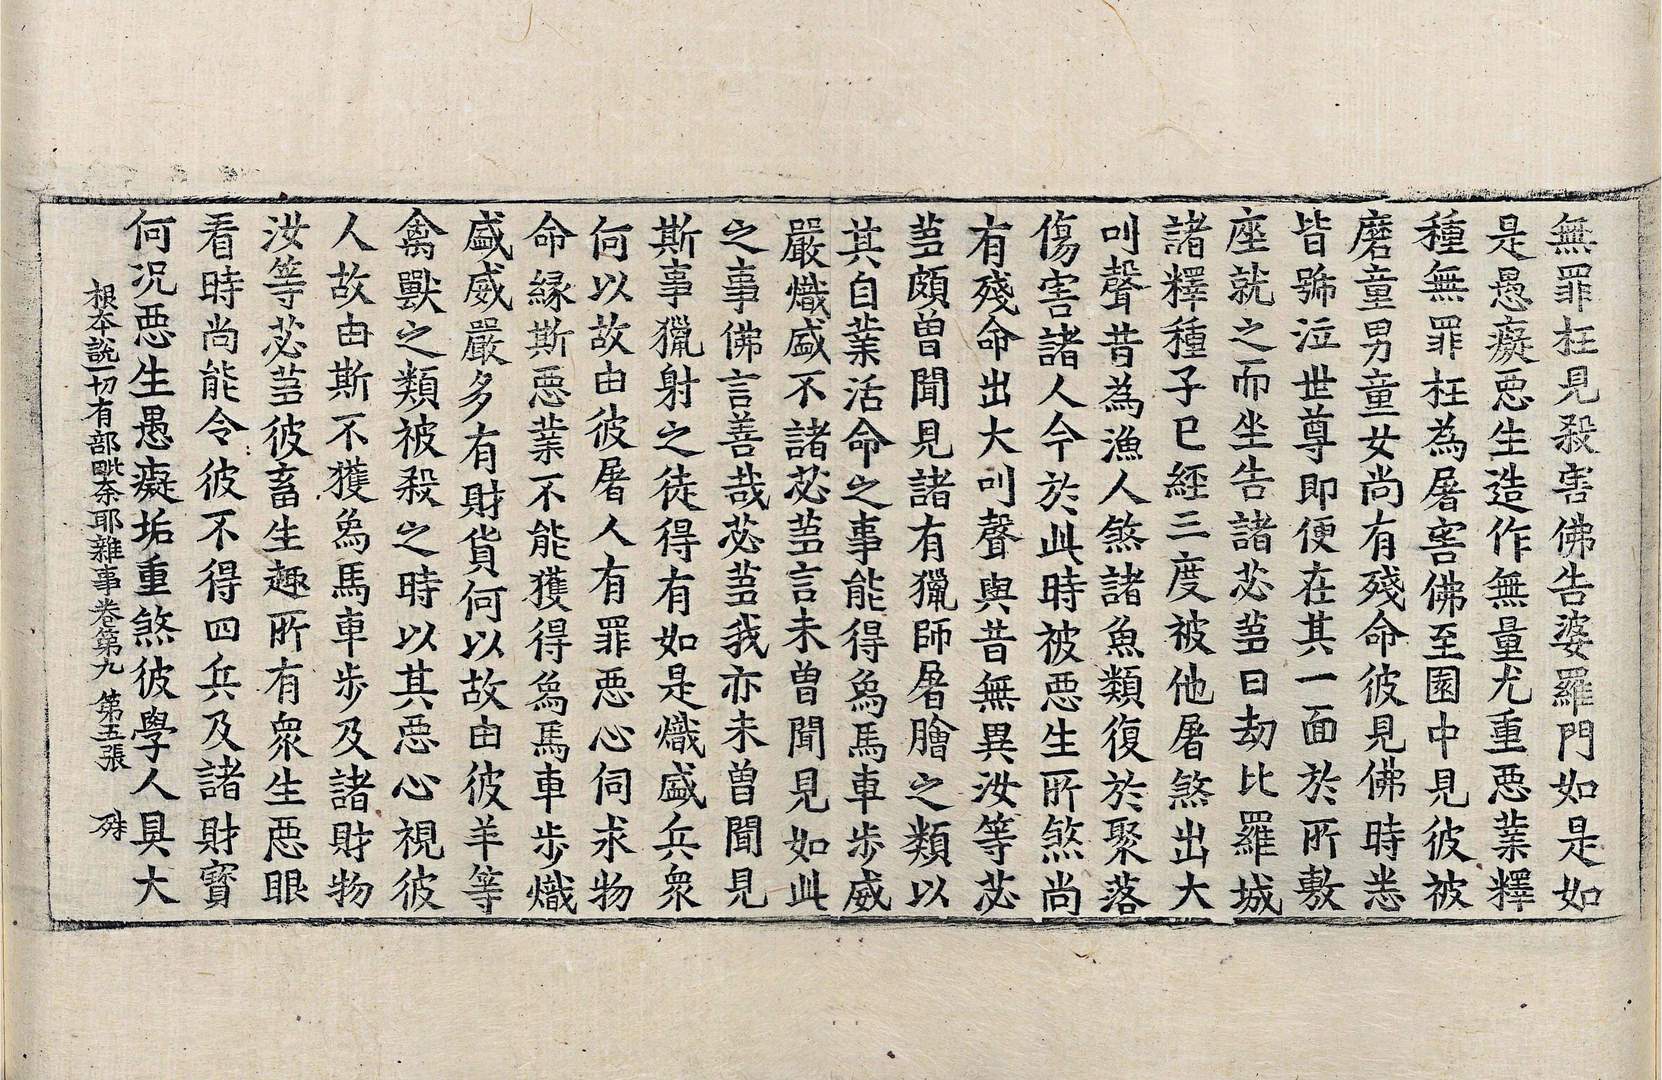 無罪枉見殺害佛告婆羅門如是如
是愚癡惡生造作無量尤重惡業釋
種無罪枉為屠害佛至園中見彼被
磨童男童女尚有殘命彼見佛時悉
皆號泣世尊即便在其一面於所敷
座就之而坐告諸苾芻曰劫比羅城
諸釋種子已經三度被他屠煞出大
叫聲昔為漁人煞諸魚類復於聚落
傷害諸人今於此時被惡生所煞尚
有殘命出大叫聲與昔無異汝等苾
芻頗曾聞見諸有獵師屠膾之類以
其自業活命之事能得象馬車步威
嚴熾盛不諸苾芻言未曾聞見如此
之事佛言善哉苾芻我亦未曾聞見
斯事獵射之徒得有如是熾盛兵衆
何以故由彼屠人有罪惡心伺求物
命緣斯惡業不能獲得象馬車步熾
盛威嚴多有財貨何以故由彼羊等
禽獸之類被殺之時以其惡心視彼
人故由斯不獲象馬車步及諸財物
汝等苾芻彼畜生趣所有衆生惡眼
看時尚能令彼不得四兵及諸財寶
何況惡生愚癡垢重煞彼學人具大
根本說一切有部毗奈耶雜事卷第九 第五張 殊